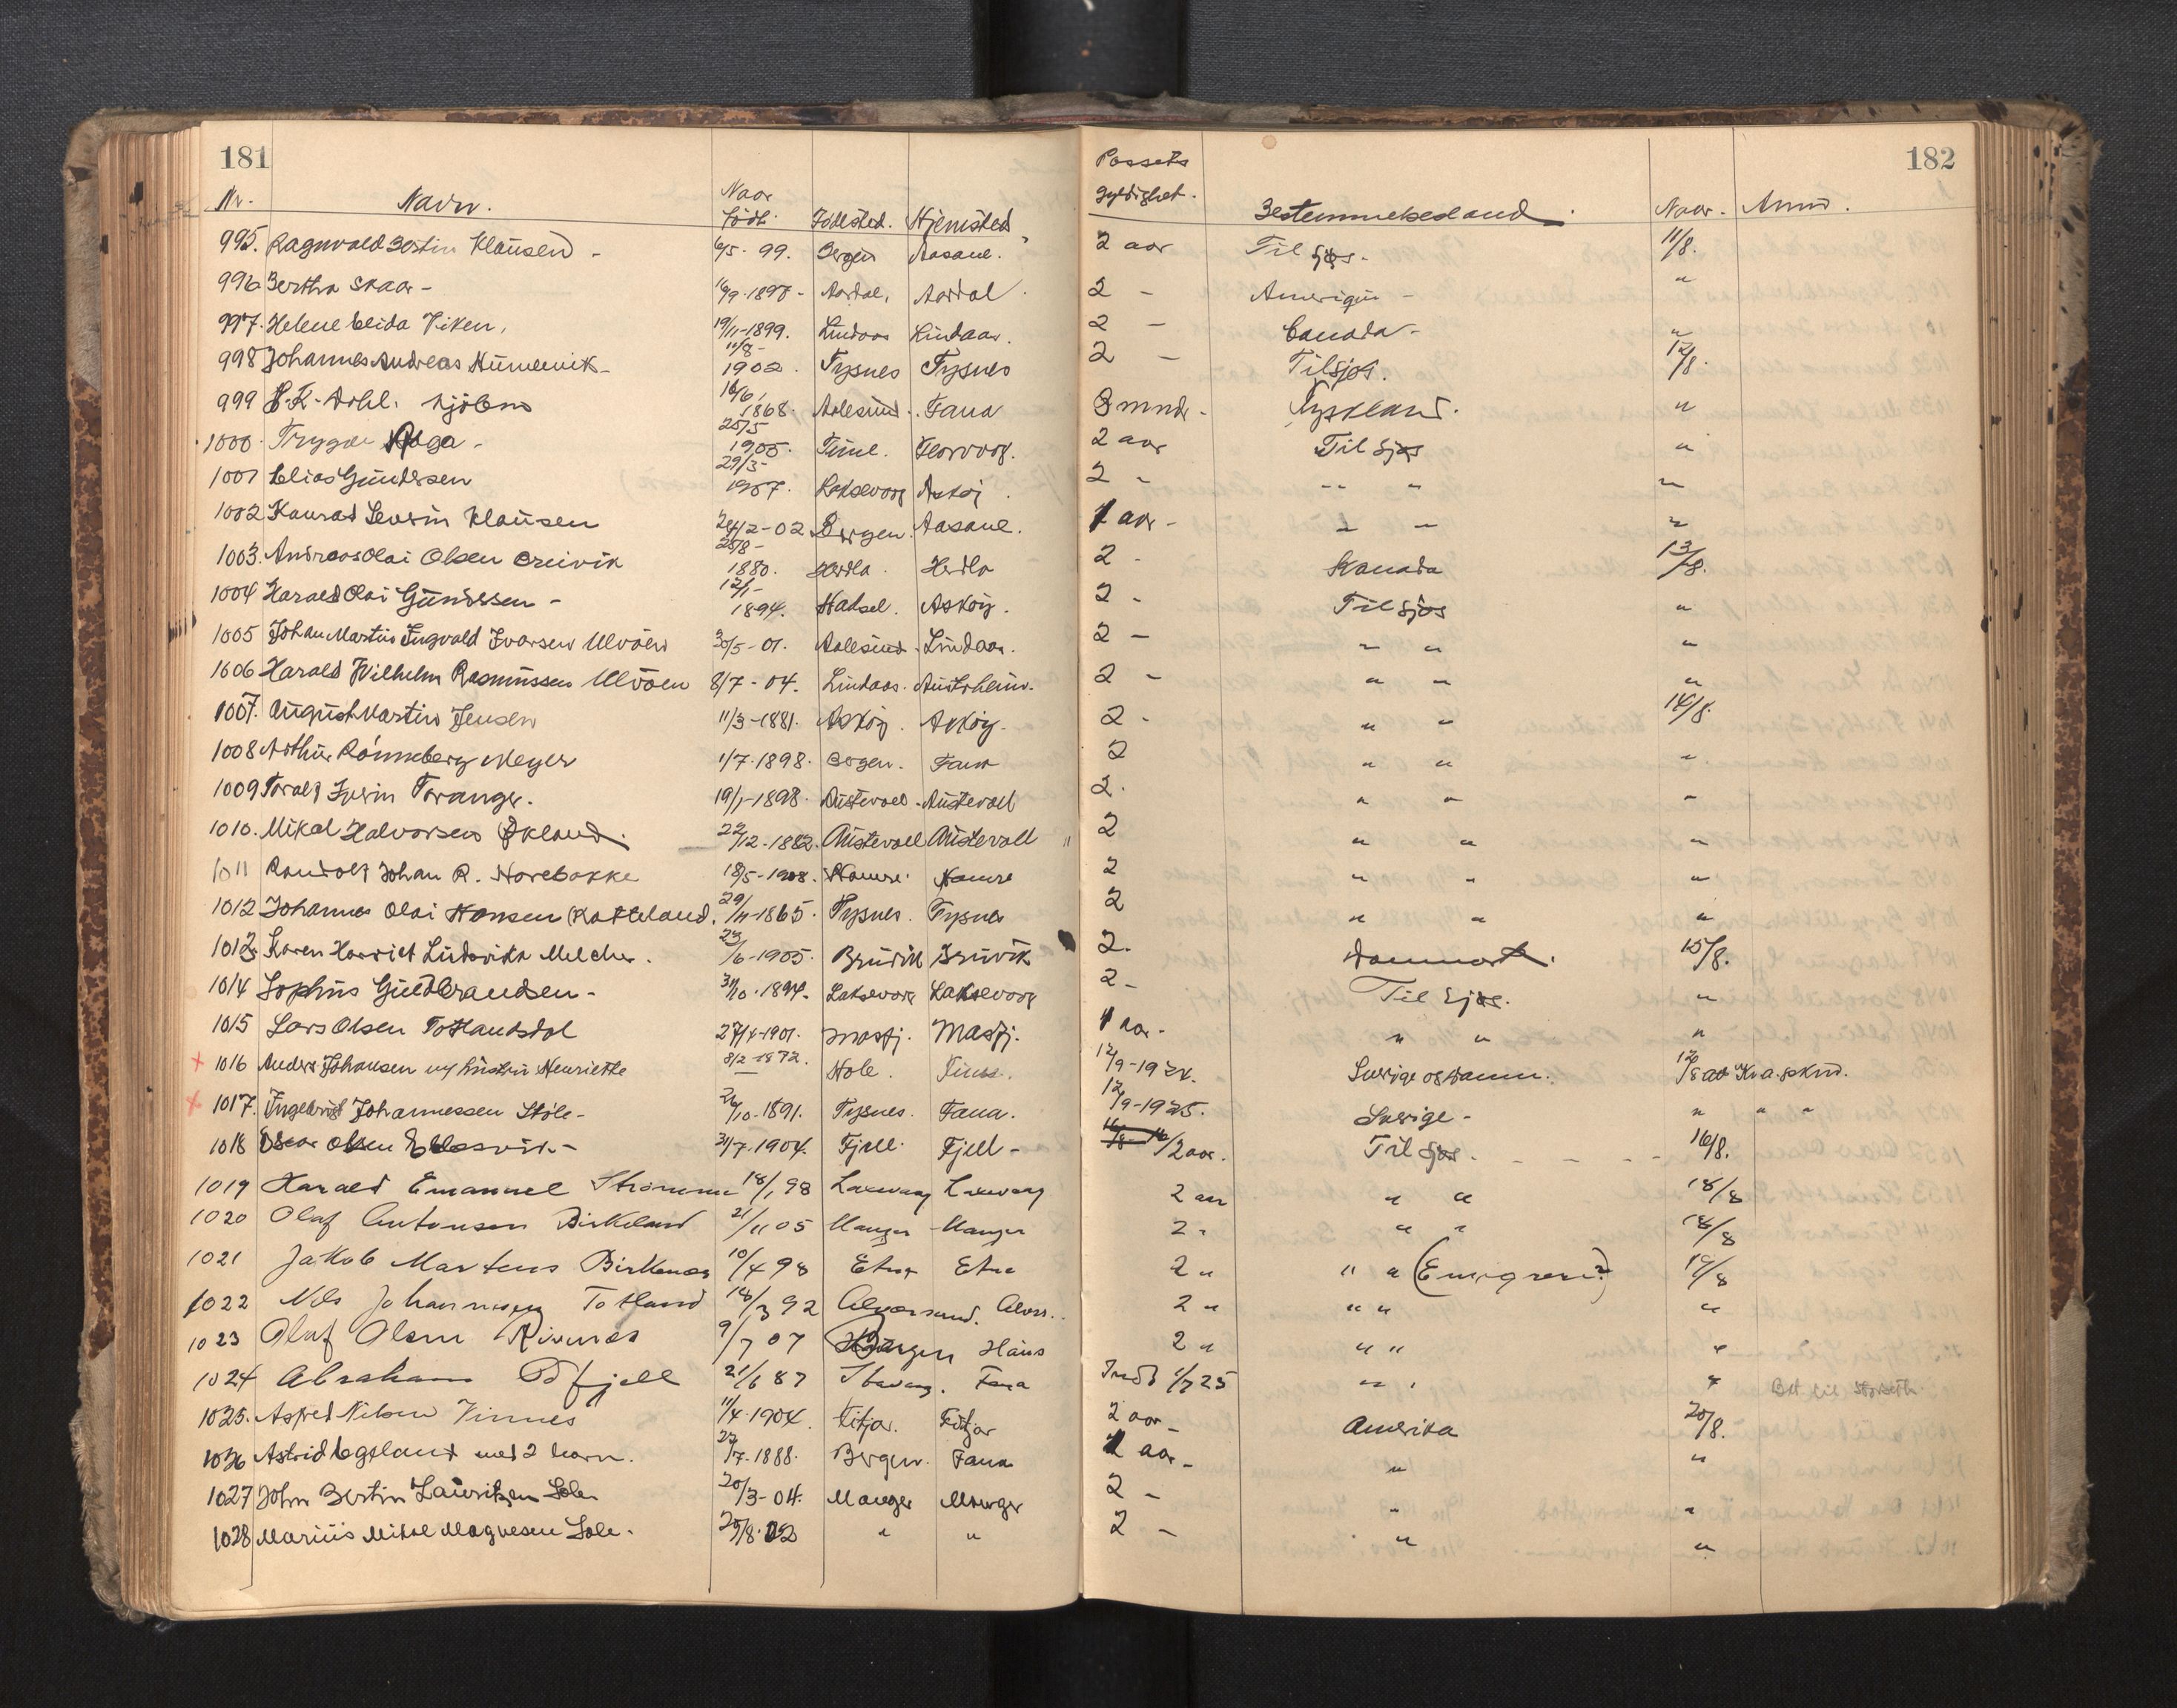 181
Nr. Navn. Naar født. Födested. Hjemsted Passets gyldighet. Bestemmelsesland. Naar. Anm.
182
995. Ragnvald Bertin Klausen - 6/5-99. Bergen Aasane. 2 aar Til sjøs. 11/8.
996 Bertha Skaar - 1897 - Aardal, Aardal 2 - Amerika - "
997. Helene 19/11-1899. Lindaas Lindaas. 2 - Canada - "
998 Johannes Andreas 11/8-1902. Tysnes Tysnes 2 - Til sjøs. 12/8.
999 16/6, 1868. Aalesund. Fana 3 mnd - Tyskland. "
1000. Trygve 25/5 1905. Florvaag. 2 aar Til sjøs "
1001 Elias Gundersen 29/3- 1907. Laksevaag Askøy. 2 - " " "
1002 Konrad Severin Klausen 24/2-02 Bergen. Aasane. 1 aar - " " "
1003. Andreas Olai Olsen 25/8- 1880. Herdla. Herdla 2 - Kanada 13/8.
1004 Harald Olai Gundersen - 12/1- 1894. Hadsel. Askøy. 2 - Til sjøs "
1005 Johan Martin Ingvald Ivarsen Ulvøen 30/5-01. Aalesund. Lindaas. 2 - " " "
1006 Harald Wilhelm Rasmussen Ulvøen 8/7-04. Lindaas. Austrheim. 2 - " " "
1007. August Martin Jensen 11/3-1881. Askøy. Askøy. 2 - " " 14/8.
1008 Arthur Rönneberg Meyer 1/7.1898. Bergen. Fana 2 " " "
1009 Toralf Iverin Toranger. 19/1-1898. Austevoll. Austevoll 2. " " "
1010. Mikal Halvorsen Økland. 22/12-1882. Austevoll Austevoll " 2 " " "
1011 Randolf Johan R. 18/5-1908. Hamre. Hamre 2 " " "
1012 Johannes Olai Hansen 29/11-1865. Tysnes. Tysnes 2 " " "
1013 Karen Harriet Ludovika Melcher. 23/6-1905. Bruvik Bruvik 2. Danmark. 15/8.
1014 Sophus Guldbrandsen - 31/10.1894. Laksevaag Laksevaag 2 - Til sjøs. "
1015 Lars Olsen Totlandsdal 27/4-1901. Masfj. Masfj. 1 aar - " " "
x 1016 Anders Johansen m/ hustru Henriette 8/2-1872. Hole. 12/9-192 Sverige og Danm. 12/8
x 1017. Ingebrigt Johannessen Støle - /10-1891. Tysnes. Fana. 12/9-1925. Sverige - " " "
1018 Oscar Olsen 31/7.1904. Fjell. Fjell - 2 aar. Til sjøs. - - - 16/8.
1019 Harald Emanuel Strømme 18/1 98 Laxevaag Laxevaag 2 aar " " 18/8
1020 Olaf Antonsen Birkeland 21/11 05 Manger Manger 2 " " " 18/8
1021 Jakob Martens Birkenes 10/4 98 Etne Etne 2 " " " 19/8
1022 Nils Johannesen Totland 18/3 92 Alversund. Alvers.. 2 " " " "
1023 Olaf Olsen 9/7 07 Bergen Haus 2 " " " "
1024 Abraham 21/6 87 Stavang. Fana Indt 1/7 25 " " "
1025. Alfred Nilsen Vinnes 11/4.1904. Fitjar. Fitjar 2 aar - Amerika 20/8.
1026 Astrid Egeland med 2 barn. 27/7.1888. Bergen. Fana 1 aar - " "
1027 John Bertin Lauritzen 20/3-04. Manger Manger 2 - " "
1028 Marius Mikal Magnesen 25/8.02 " " 2 - " "